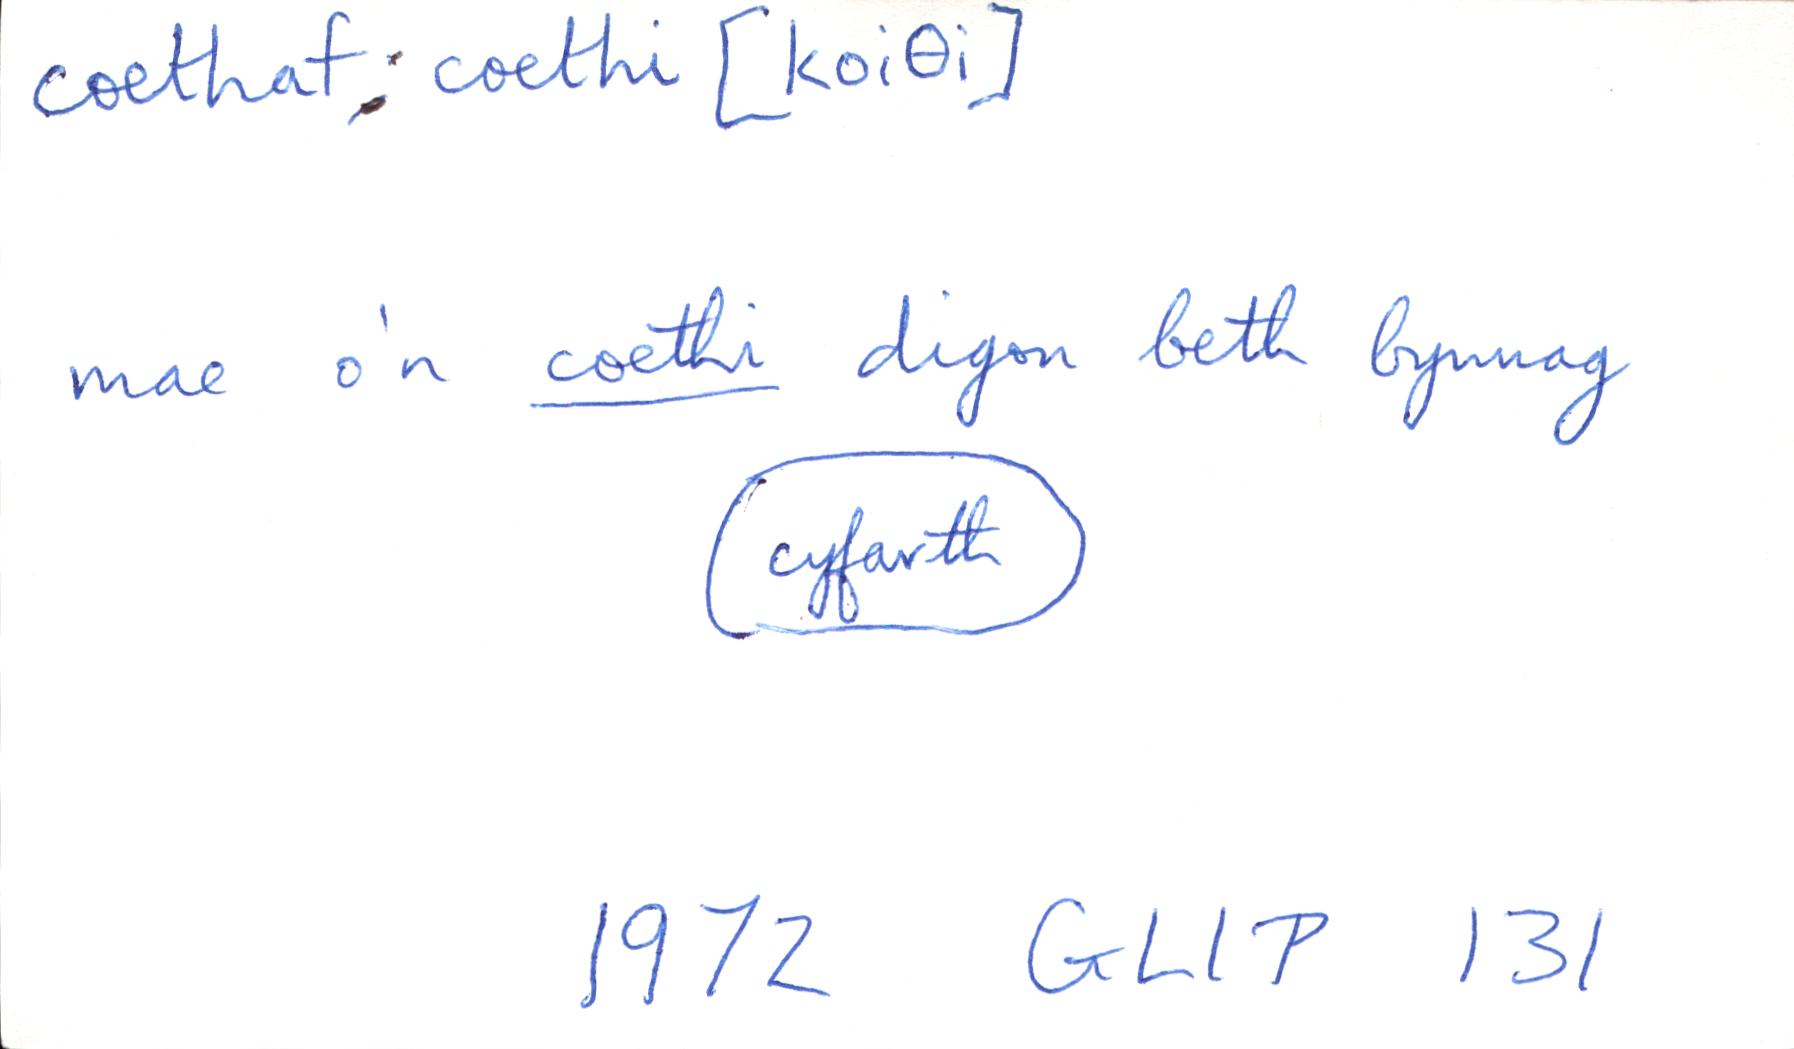 coethaf: coethi [koiθi]
mae o'n coethi digon beth bynnag
cyfarth
1972 GLIP 131